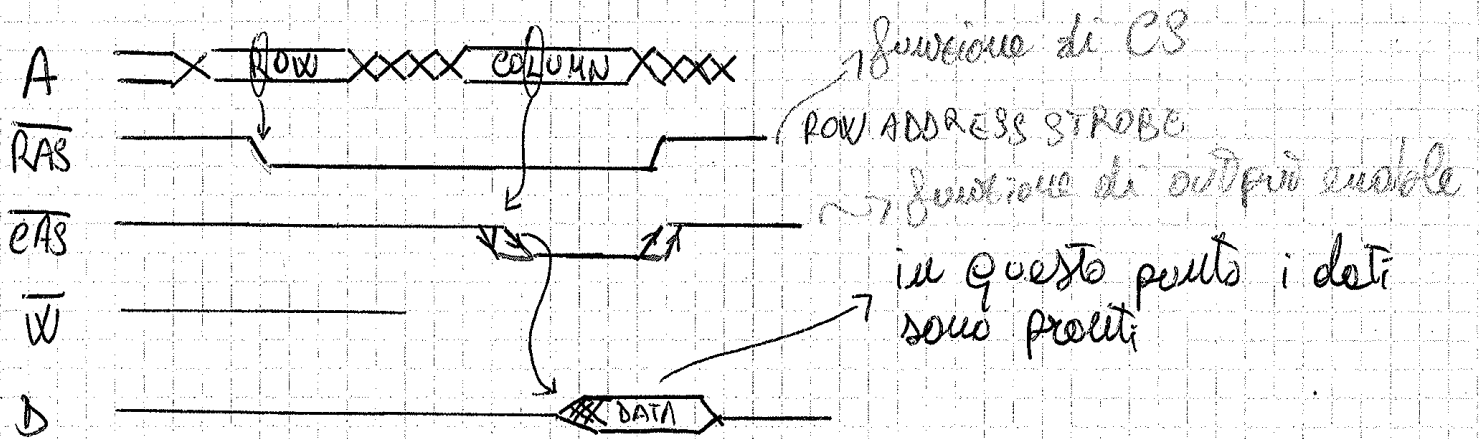 A ROW COLUMN
funzione di CS
RAS ROW ADDRESS STROBE
funzione di output enable
CAS
in questo punto i dati
sono pronti
W
D DATA